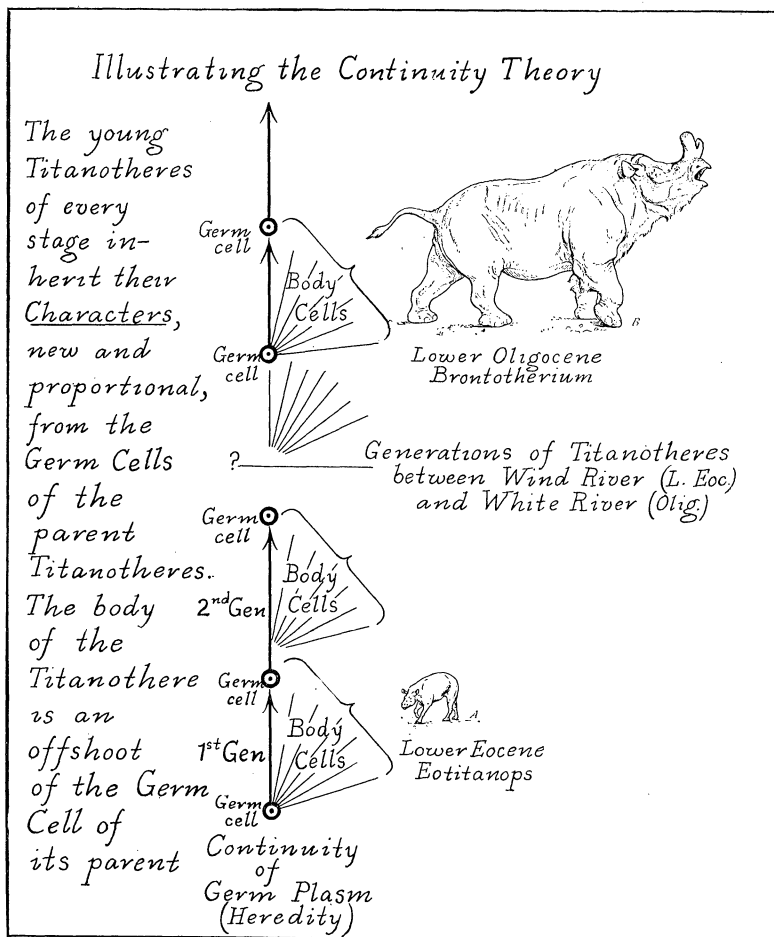 Illustrating the Continuity Theory
The young
Titanotheres
of every
stage in-
herit their
Characters,
new and
proportional,
from the
Germ Cells
of the
parent
Titanotheres.
The body
of the
Titanothere
is an
offshoot
of the Germ
Cell of
its parent
Germ
cell
Body
Cells
Germ
cell
B
Lower Oligocene
Brontotherium
?
Generations of Titanotheres
between Wind River (L. Eoc.)
and White River (Olig.)
Germ
cell
Body
Cells
2nd Gen
Germ
cell
Body
Cells
1st Gen
Germ
cell
A
Lower Eocene
Eotitanops
Continuity
of
Germ Plasm
(Heredity)